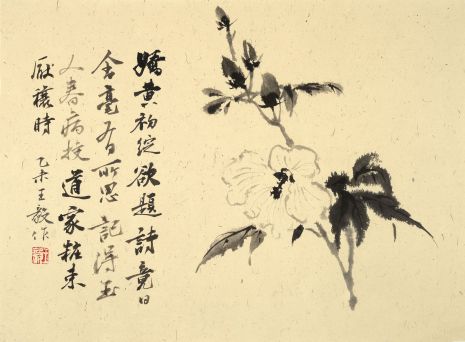 嬌黄初綻欲題詩竟日
含毫有所思記得玉
人春病校道家粧束
厭禳時
乙未王毅作